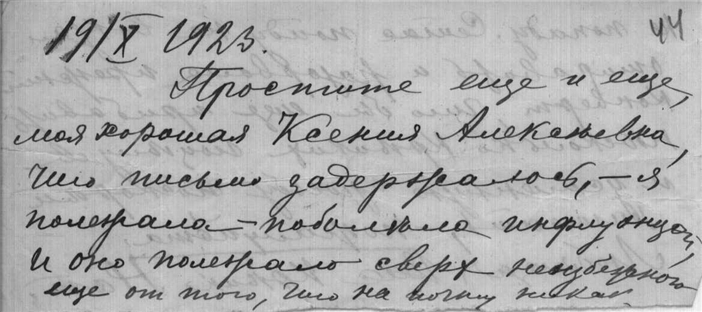 44
19/X 1923.
Простите еще и еще,
моя хорошая Ксения Алексеевна,
что письмо задержалось, – я
полежала – поболела инфлуэнцой,
и оно полежало сверх неизбежного
еще от того, что на почту никак